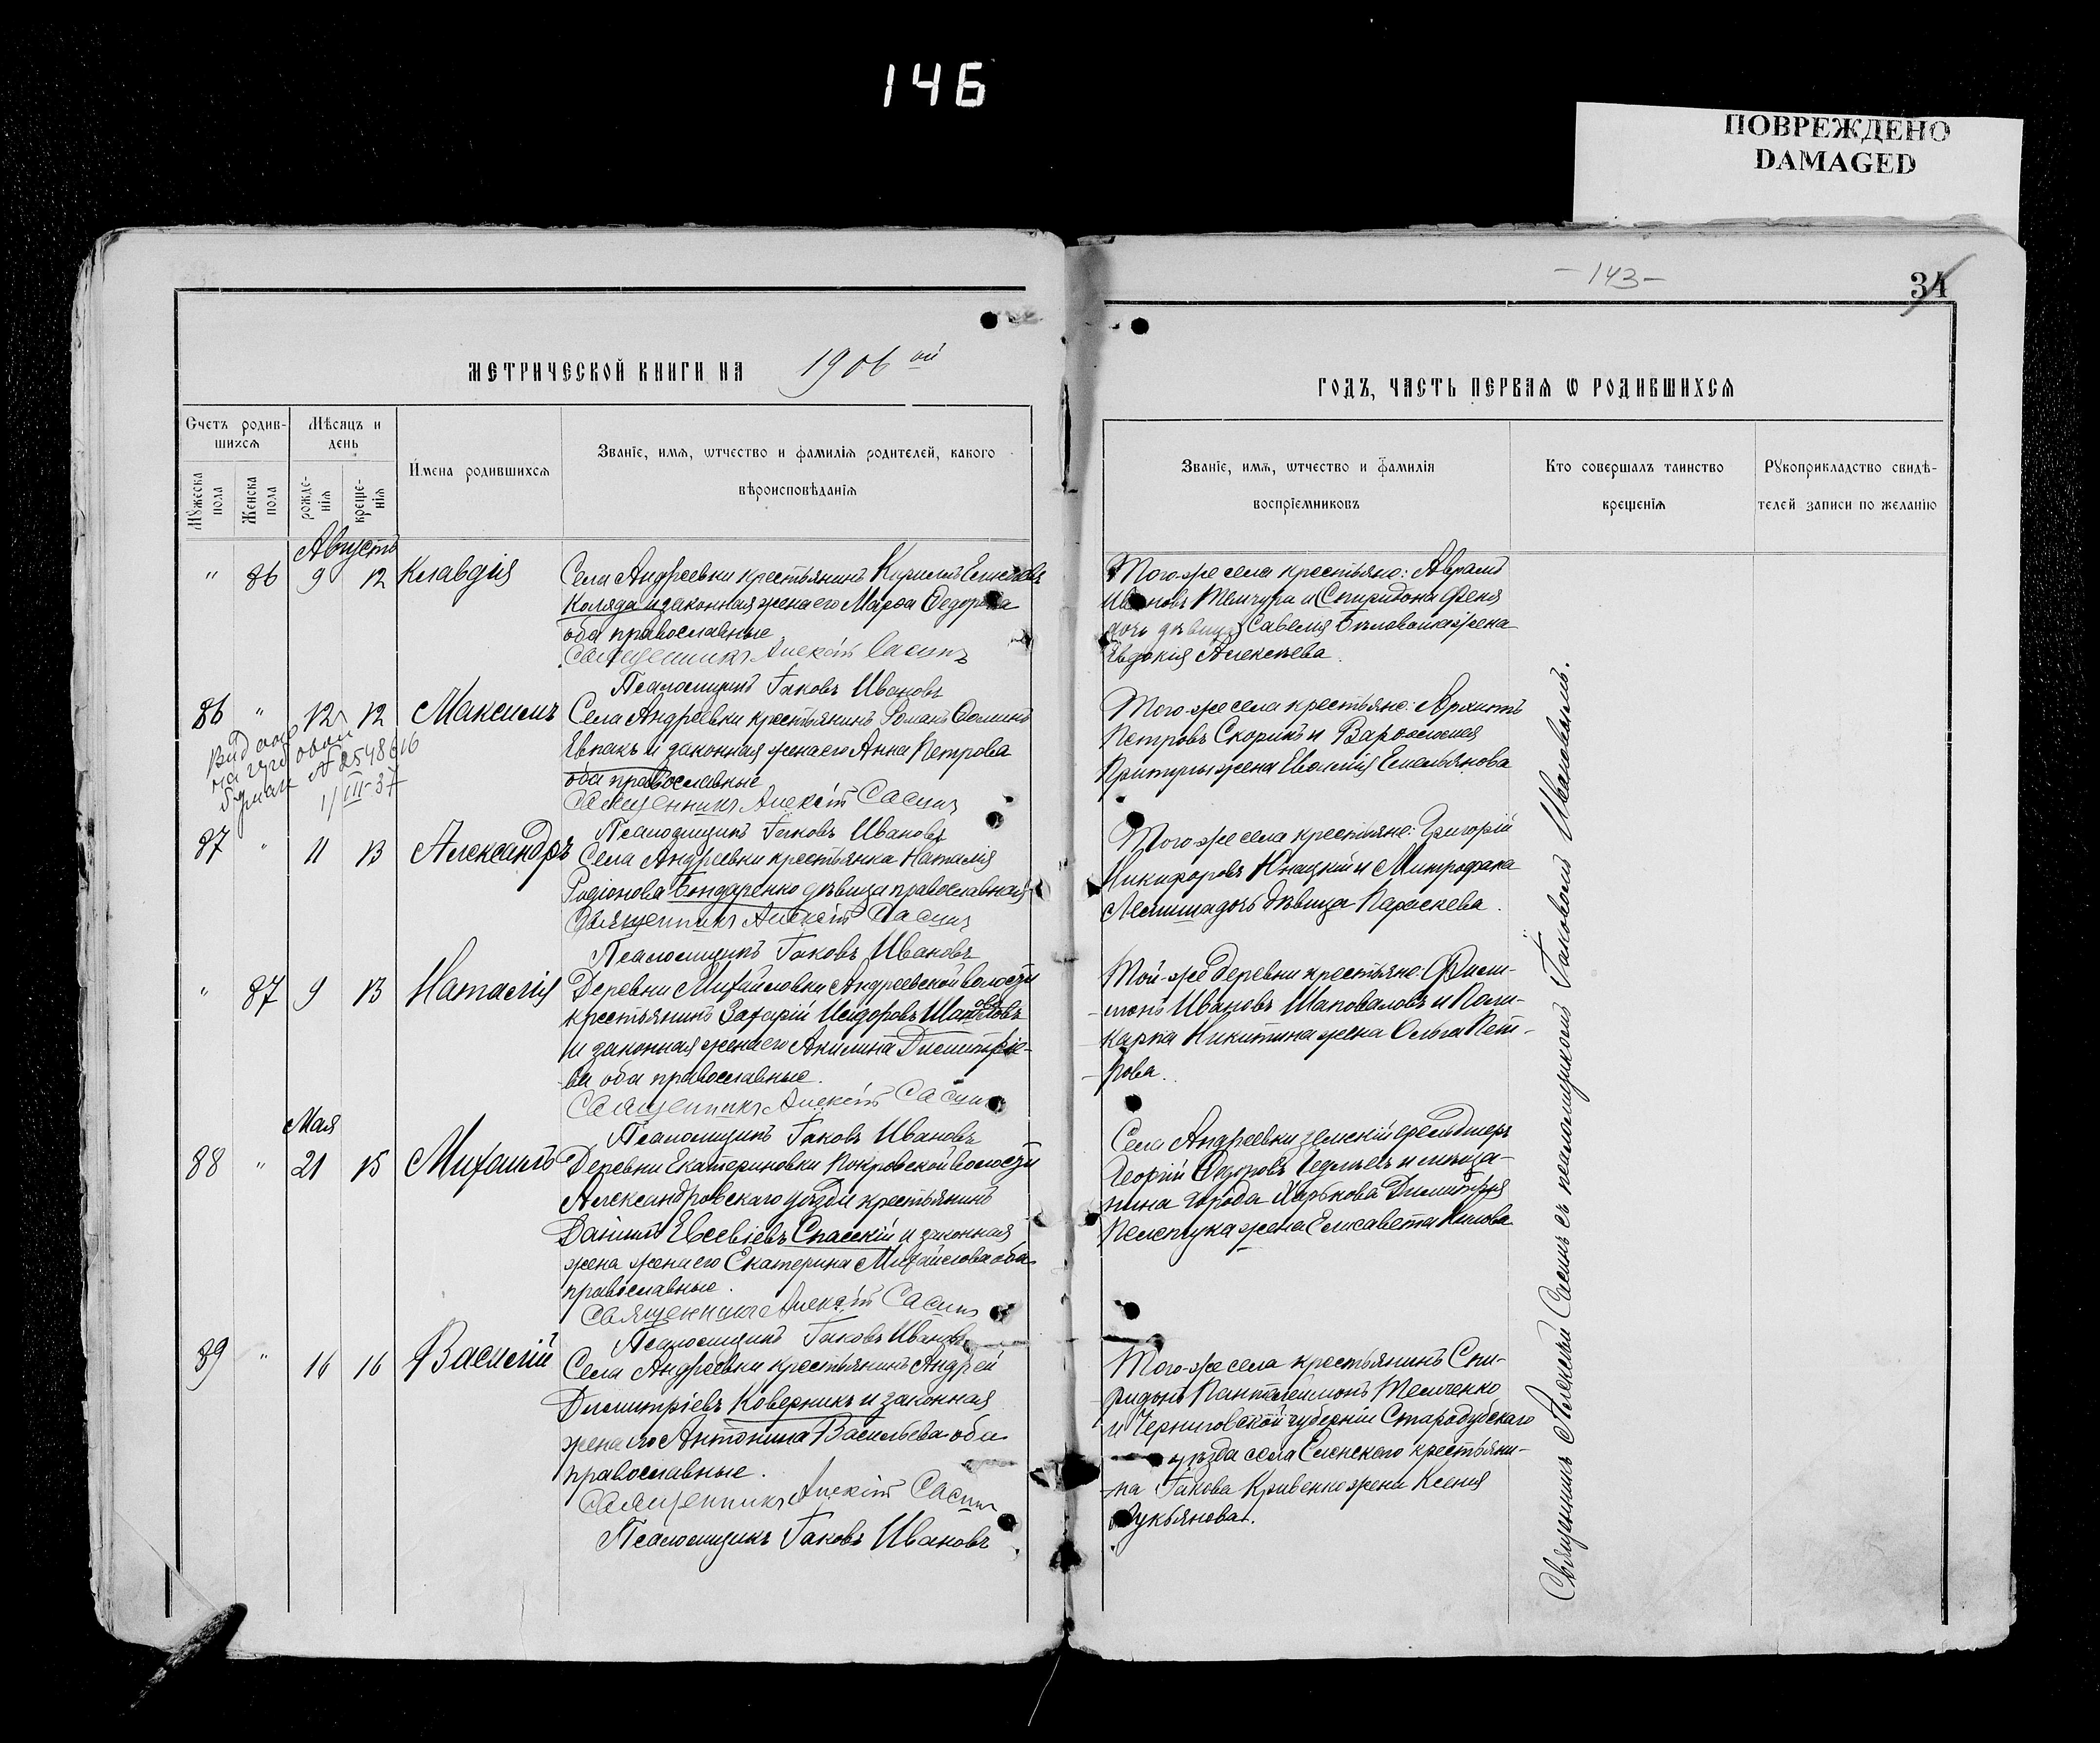 146
ПОВРЕЖДЕНО
DAMAGED
-143-
34
МЕТРИЧЕСКОЙ КНИГИ НА 1906 ой
ГОДЪ, ЧАСТЬ ПЕРВАЯ Ѡ РОДИВШИХСЯ
Счетъ родив-
шихсѧ
Мѣсяцъ и
день
Мꙋжеска
пола
Женска
пола
рожде-
нїя
креще-
нїя
Имена родившихсѧ
Званїе, имѧ, ѡтчество и фамилїѧ родителей, какого
вѣроисповѣданїѧ
Званїе, имѧ, ѡтчество и фамилїѧ
воспрїемниковъ
Кто совершалъ таинство
крещенїѧ
Рꙋкоприкладство свидѣ-
телей записи по желанїю
Августъ
" 86 9 12 Клавдія
Села Андреевки крестьянинъ Кириллъ
Коляда и законная жена его Марѳа Ѳедорова
оба православные
Священникъ Алексій Сасинъ
Псаломщикъ Іаковъ Ивановъ
Того-же села крестьяне: Аврамъ
Ивановъ и Спиридона
дочь дѣвица Савелія жена
Евдокія Алексѣева.
86 " 12 12 Максимъ
Видано
на гуговой
бумаги № 2548616
1/III-37
Села Андреевки крестьянинъ Романъ
Евпакъ и законная жена его Анна Петрова
оба православные
Священникъ Алексій Сасинъ
Псаломщикъ Іаковъ Ивановъ
Того-же села крестьяне:
Петровъ Скорикъ и Варѳоломея
Притулы жена Евѳимія Емельянова
87 " 11 13 Александръ
Села Андреевки крестьянка Наталія
Родіонова Бондаренко дѣвица православная
Священникъ Алексій Сасинъ
Псаломщикъ Іаковъ Ивановъ
Того-же села крестьяне: Григорій
Никифоровъ Юнацкій и Митрофана
Лемиша дочь дѣвица Параскева.
" 87 9 13 Наталія
Деревни Михайловки Андреевской волости
крестьянинъ Захарій Исидоровъ Шаповаловъ
и законная жена его Акилина Димитріе-
ва оба православные.
Священникъ Алексій Сасинъ
Псаломщикъ Іаковъ Ивановъ
Той-же деревни крестьяне: Фили-
монъ Ивановъ Шаповаловъ и Поли-
карпа Никитина жена Ольга Пет-
рова.
Мая
88 " 21 15 Михаилъ
Деревни Екатериновки Покровской волости
Александровскаго уѣзда крестьянинъ
Даніилъ Евсевіевъ Спасскій и законная
жена жена его Екатерина Михайлова оба
православные.
Священникъ Алексій Сасинъ
Псаломщикъ Іаковъ Ивановъ
Села Андреевки земскій фельдшеръ
Георгій Ѳедоровъ и мѣща-
нина города Харькова Димитрія
жена Елисавета
89 " 16 16 Василій
Села Андреевки крестьянинъ Андрей
Димитріевъ Коверникъ и законная
жена его Антонина Васильева оба
православные.
Священникъ Алексій Сасинъ
Псаломщикъ Іаковъ Ивановъ
Того-же села крестьянинъ Спи-
ридонъ Пантелеимонъ Темченко
и Черниговской губерніи Стародубскаго
уѣзда села Еленскаго крестьяни-
на Іакова Кривенко жена Ксенія
Лукьянова.
Священникъ Алексѣй Сасинъ съ псаломщикомъ Іаковомъ Ивановымъ.